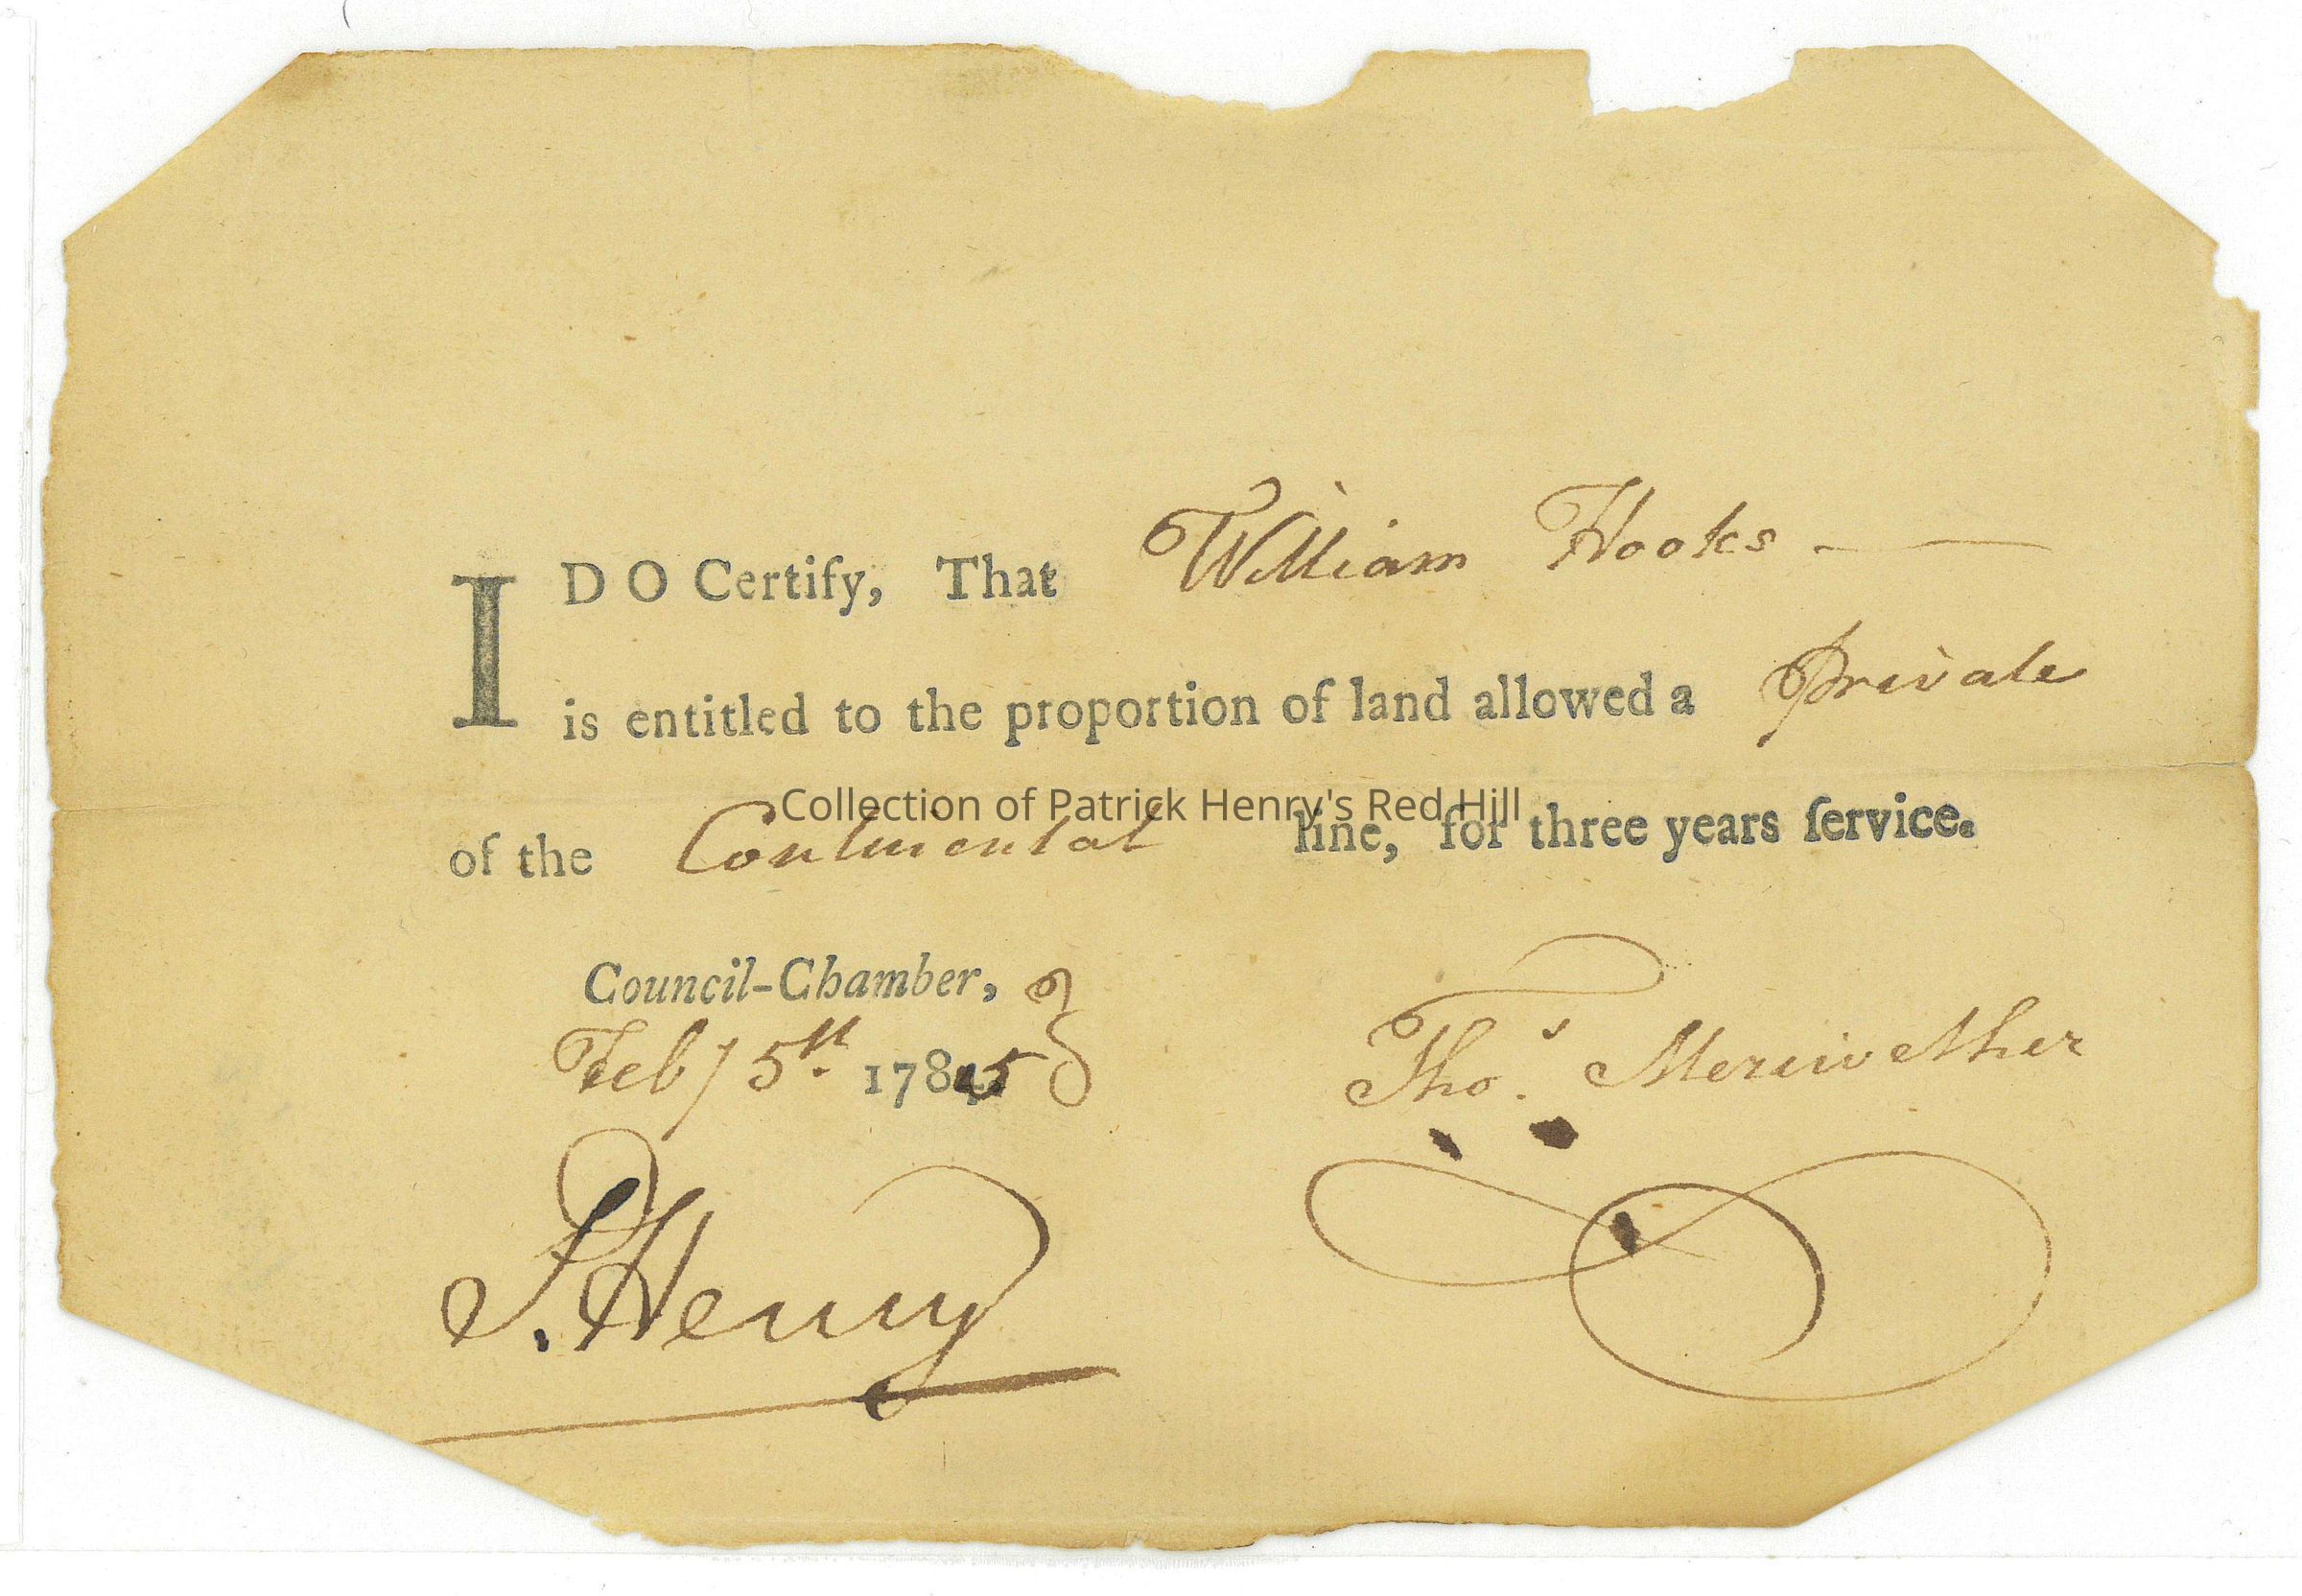 I DO Certify, That William Hooks
is entitled to the proportion of land allowed a Private
Collection of Patrick Henry's Red Hill
of the Continental line, for three years ſervice.
Council-Chamber,
Feby 5th. 1785
Thos. Meriwether
P. Henry